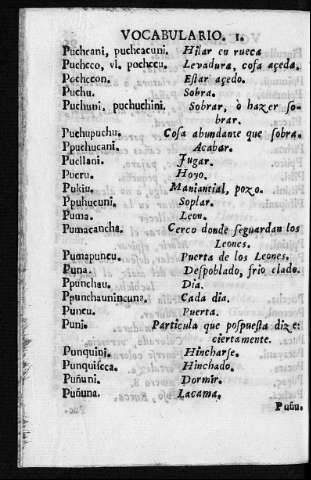 VOCABULARIO. I.
Pucheani, pucheacuni. Hilar en rueca
Pucheco, vl. pocheco. Levadura, cosa açeda.
Pochccon. Estar açedo.
Puchu. Sobra.
Puchuni, puchuchini. Sobrar, o hazer so-
brar.
Puchupuchu. Cosa abundante que sobra.
Ppuchucani. Acabar.
Puellani. Jugar.
Pucru. Hoyo.
Pukiu. Maniantial, pozo.
Ppuhucuni. Soplar.
Puma. Leon.
Pumacancha. Cerco donde seguardan los
Leones.
Pumapuncu. Puerta de los Leones.
Puna. Despoblado, frio clado.
Ppunchau. Dia.
Ppunchaunincuna. Cada dia.
Puncu. Puerta.
Puni. Particula que pospuesta dize:
ciertamente.
Punquini. Hincharse.
Punquiscca. Hinchado.
Puñuni. Dormir.
Puñuna. Lacama.
Puñu.